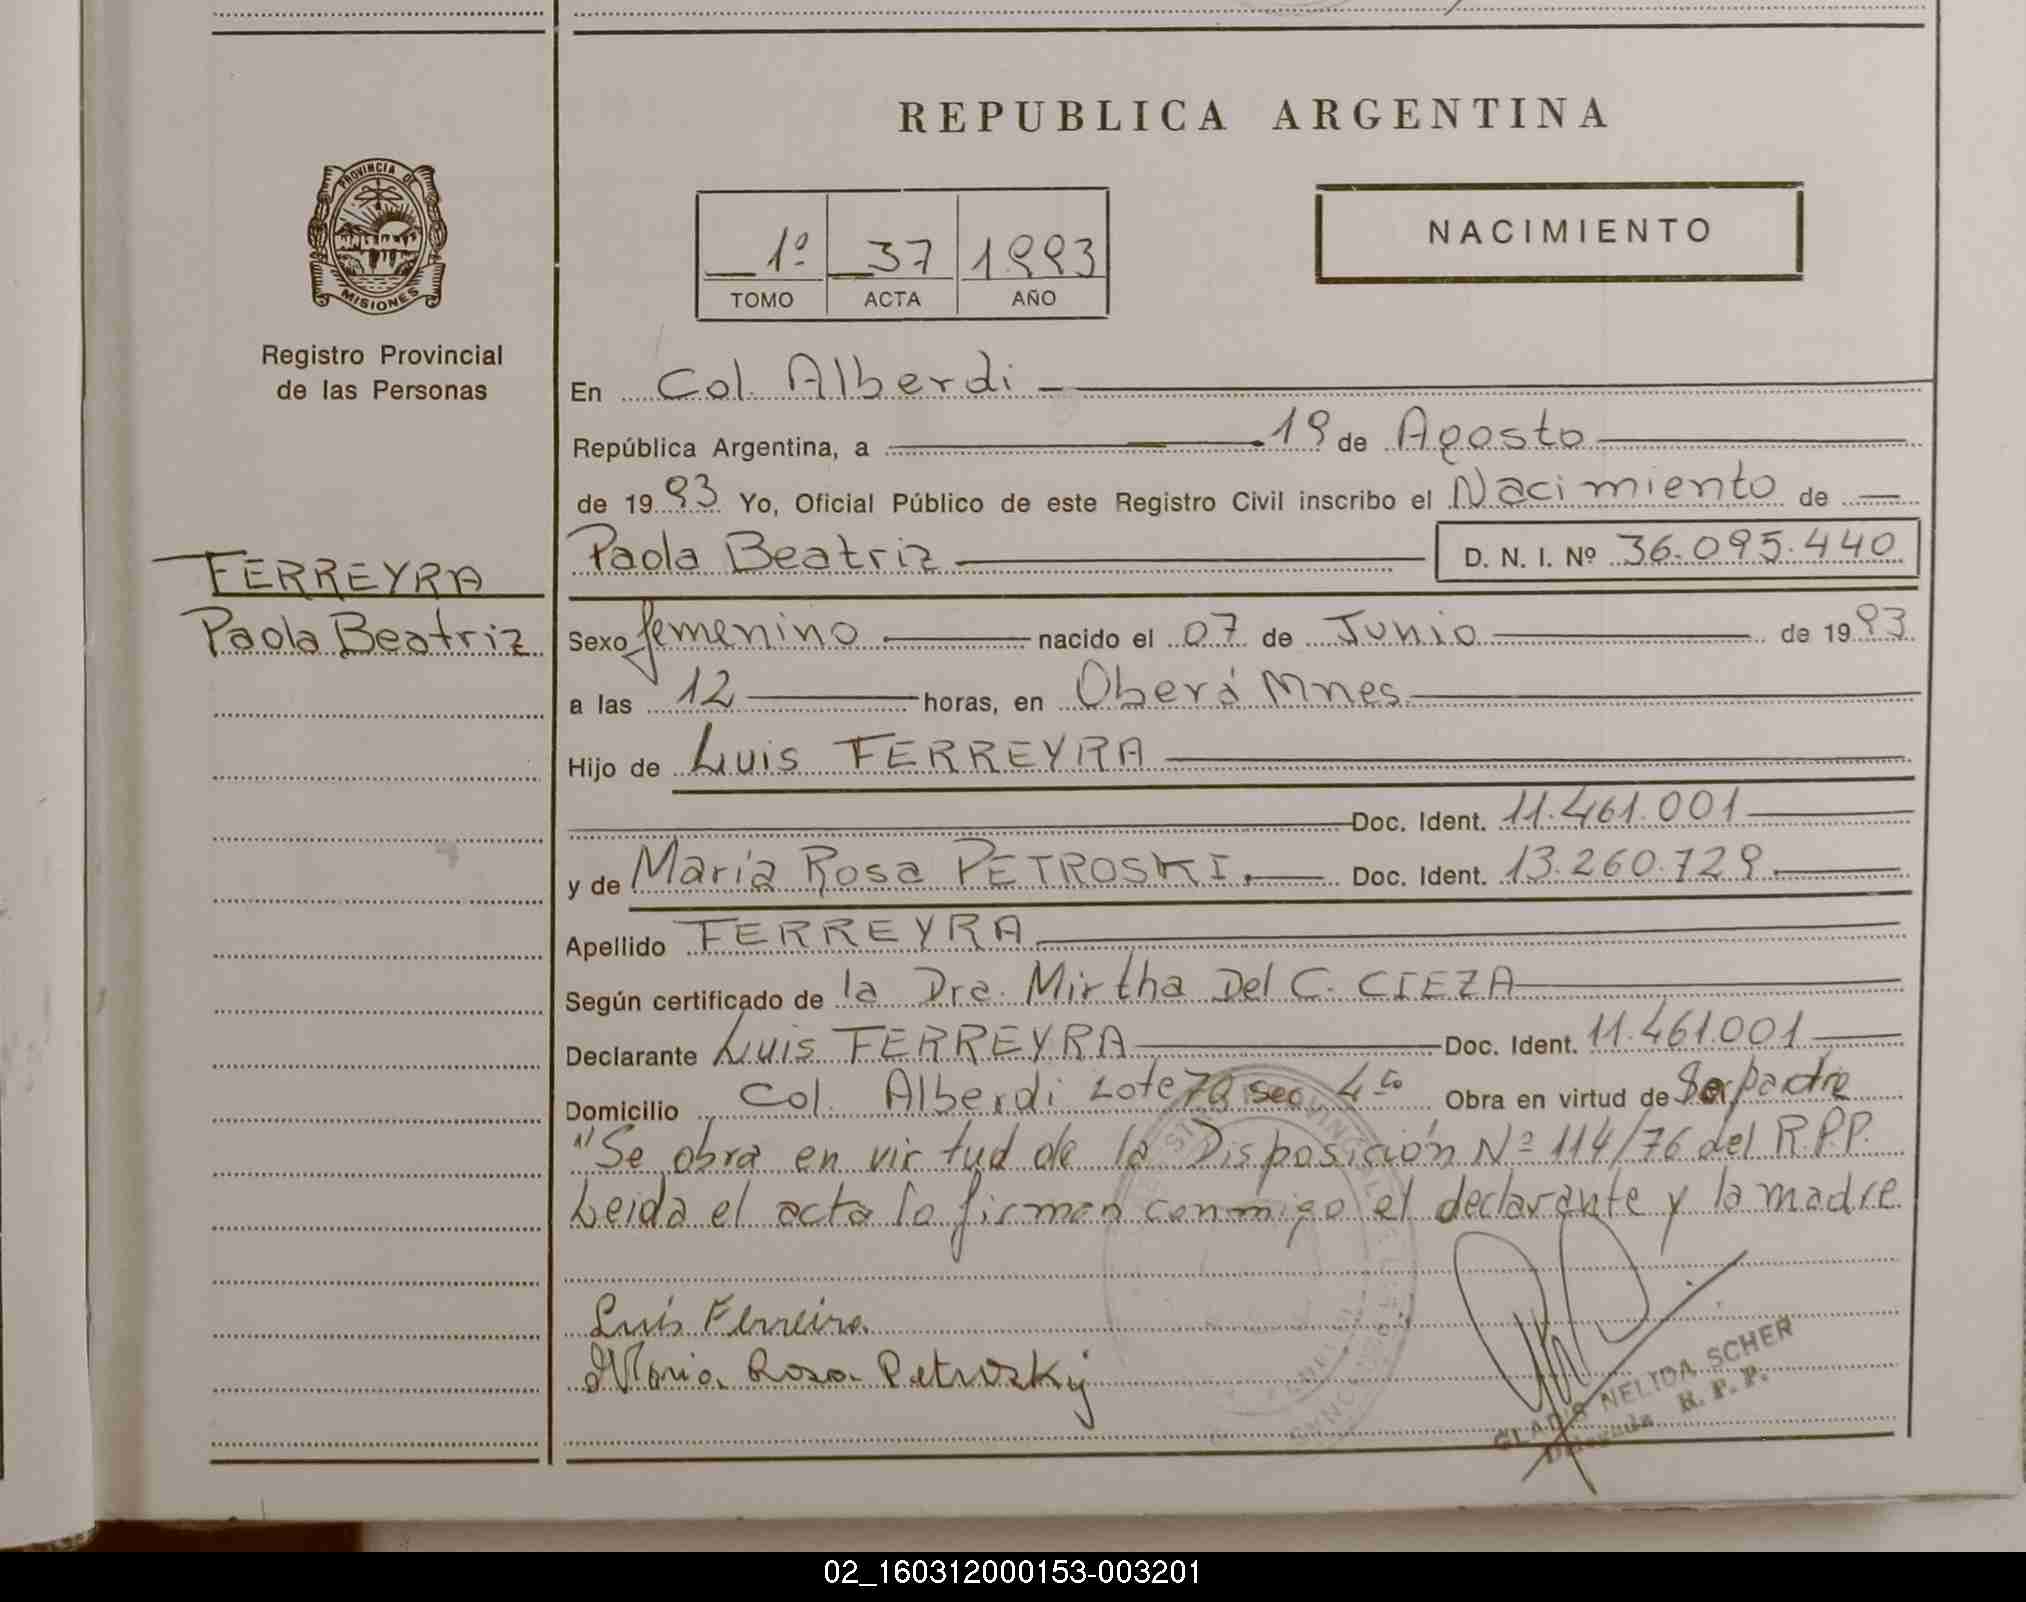 REPUBLICA ARGENTINA
PROVINCIA DE
MISIONES
Registro Provincial
de las Personas
1º 37 1993
TOMO ACTA AÑO
NACIMIENTO
En Col. Alberdi
República Argentina, a 19 de Agosto
de 1993 Yo, Oficial Público de este Registro Civil inscribo el Nacimiento de
Paola Beatriz D. N. I. Nº 36.095.440
FERREYRA
Paola Beatriz
Sexo femenino nacido el 07 de Junio de 1993
a las 12 horas, en Oberá Mnes
Hijo de Luis FERREYRA
Doc. Ident. 11.461.001
y de María Rosa PETROSKI. Doc. Ident. 13.260.729
Apellido FERREYRA
Según certificado de la Dra. Mirtha Del C. CIEZA
Declarante Luis FERREYRA Doc. Ident. 11.461.001
Domicilio Col. Alberdi Lote 70 sec. 4 Obra en virtud de Ser padre
"Se obra en virtud de la Disposición Nº 114/76 del R.P.P.
Leida el acta la firman conmigo el declarante y la madre
Luis Ferreira
Maria Rosa Petrosky
GLADIS NELIDA SCHER
Delegada R. P. P.
02_160312000153-003201